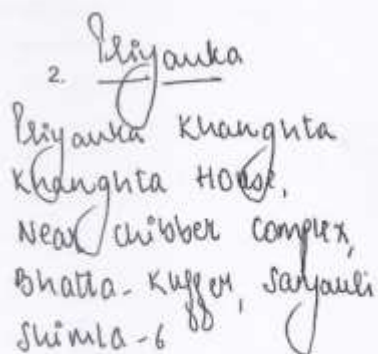 2. Priyanka
Priyanka Khanghta
Khanghta House,
Near Chibber Complex,
Bhatta-Kuffer, Sanjauli
Shimla-6